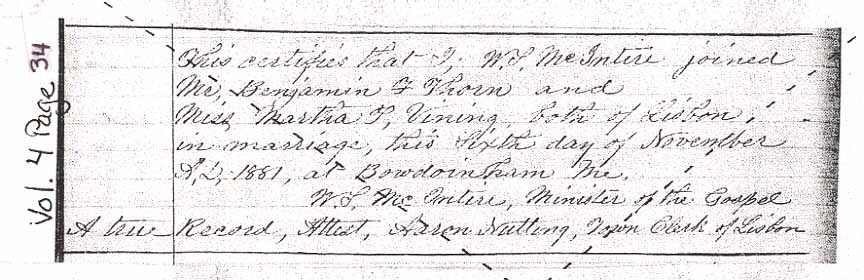 Vol. 4 Page 34
This certifies that I, W. S. McIntire joined
Mr, Benjamin F Thorn and
Miss Martha P, Vining, both of Lisbon,
in marriage, this Sixth day of November
A,D, 1881, at Bowdoinham Me.
W. S. McIntire, Minister of the Gospel
A true Record, Attest, Aaron Nutting, Town Clerk of Lisbon